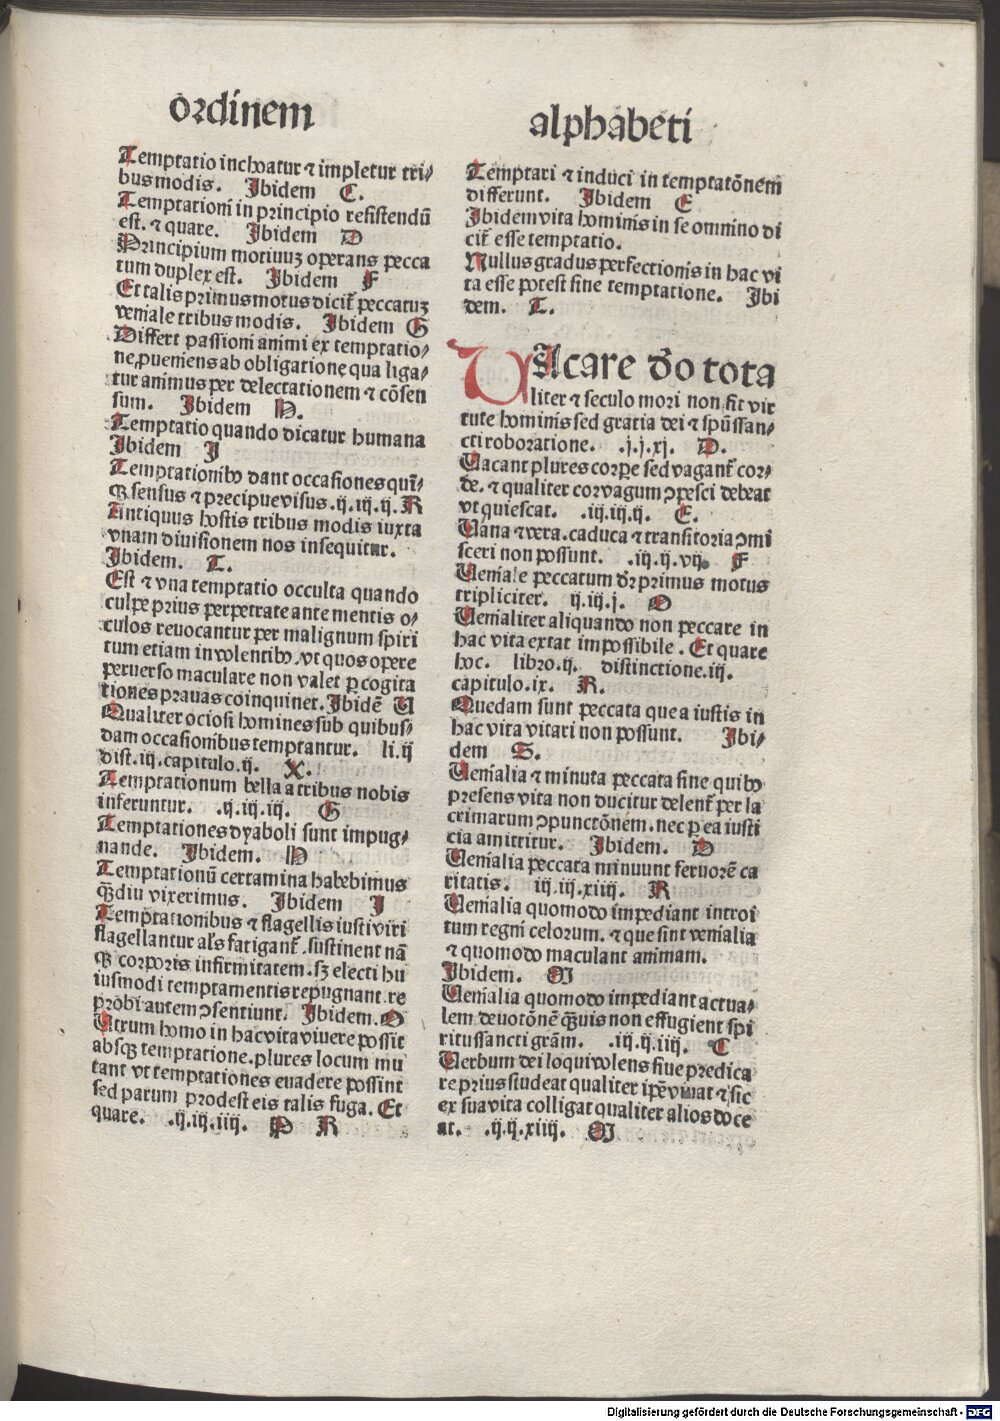 ordinem
Temptatio inchoatur ⁊ impletur tri⸗
bus modis. Ibidem C.
Temptationi in principio resistendū
est. ⁊ quare. Ibidem D
Principium motiuuꝫ operans pecca
tum duplex est. Ibidem F
Et talis primus motus dicit᷑ peccatuꝫ
veniale tribus modis. Ibidem G
Differt passioni animi ex temptatio⸗
ne, pueniens ab obligatione qua liga⸗
tur animus per delectationem ⁊ cōsen
sum. Ibidem H.
Temptatio quando dicatur humana
Ibidem I
Temptationibꝰ dant occasiones quī⸗
qꝫ sensus ⁊ precipue visus .ij.iij.ij. R
Antiquus hostis tribus modis iuxta
vnam diuisionem nos insequitur.
Ibidem. T.
Est ⁊ vna temptatio occulta quando
culpe prius perpetrate ante mentis o⸗
culos reuocantur per malignum spiri
tum etiam in volentibꝰ. vt quos opere
peruerso maculare non valet ꝑ cogita
tiones prauas coinquinet. Ibidē V
Qualiter ociosi homines sub quibus⸗
dam occasionibus temptantur. li.ij
dist.iij.capitulo.ij. X.
Temptationum bella a tribus nobis
inferuntur. .ij.iij.iij. G
Temptationes dyaboli sunt impug⸗
nande. Ibidem. H
Temptationū certamina habebimus
qᷓdiu vixerimus. Ibidem I
Temptationibus ⁊ flagellis iusti viri
flagellantur al's fatigant᷑. sustinent nā
qꝫ corporis infirmitatem. sꝫ electi hu
iusmodi temptamentis repugnant. re
probi autem ↄsentiunt. Ibidem. O
Vtrum homo in hac vita viuere possit
absqꝫ temptatione. plures locum mu
tant vt temptationes euadere possint
sed parum prodest eis talis fuga. Et
quare. .ij.iij.iiij. P R
alphabeti
Temptari ⁊ induci in temptatōnem
differunt. Ibidem E
Ibidem vita hominis in se omnino di
cit᷑ esse temptatio.
Nullus gradus perfectionis in hac vi
ta esse potest sine temptatione. Ibi
dem. T.
VAcare deo tota
liter ⁊ seculo mori non fit vir
tute hominis sed gratia dei ⁊ spūssan⸗
cti roboratione. .j.j.xj. D.
Vacant plures corpe sed vagant᷑ cor⸗
de. ⁊ qualiter cor vagum ↄpesci debeat
vt quiescat. .iij.iij.ij. E.
Vana ⁊ vera. caduca ⁊ transitoria ↄmi
sceri non possunt. .iij.ij.vij. F
Veniale peccatum dr̄ primus motus
tripliciter. ij.iij.j. O
Venialiter aliquando non peccare in
hac vita extat impossibile. Et quare
hoc. libro.ij. distinctione.iij.
capitulo.ix. R.
Quedam sunt peccata que a iustis in
hac vita vitari non possunt. Ibi⸗
dem S.
Venialia ⁊ minuta peccata sine quibꝰ
presens vita non ducitur delent᷑ per la
crimarum ↄpunctōnem. nec ꝑ ea iusti
cia amittitur. Ibidem. D
Venialia peccata minuunt feruorē ca
ritatis. iij.iij.xiiij. R
Venialia quomodo impediant introi
tum regni celorum. ⁊ que sint venialia
⁊ quomodo maculant animam.
Ibidem. M
Venialia quomodo impediant actua⸗
lem deuotōnē qᷓuis non effugient spi
ritussancti grām. .iij.ij.iiij. C
Verbum dei loqui volens siue predica
re prius studeat qualiter ipē viuat ⁊ sic
ex sua vita colligat qualiter alios doce
at. .ij.ij.xiiij. M
Digitalisierung gefördert durch die Deutsche Forschungsgemeinschaft - DFG